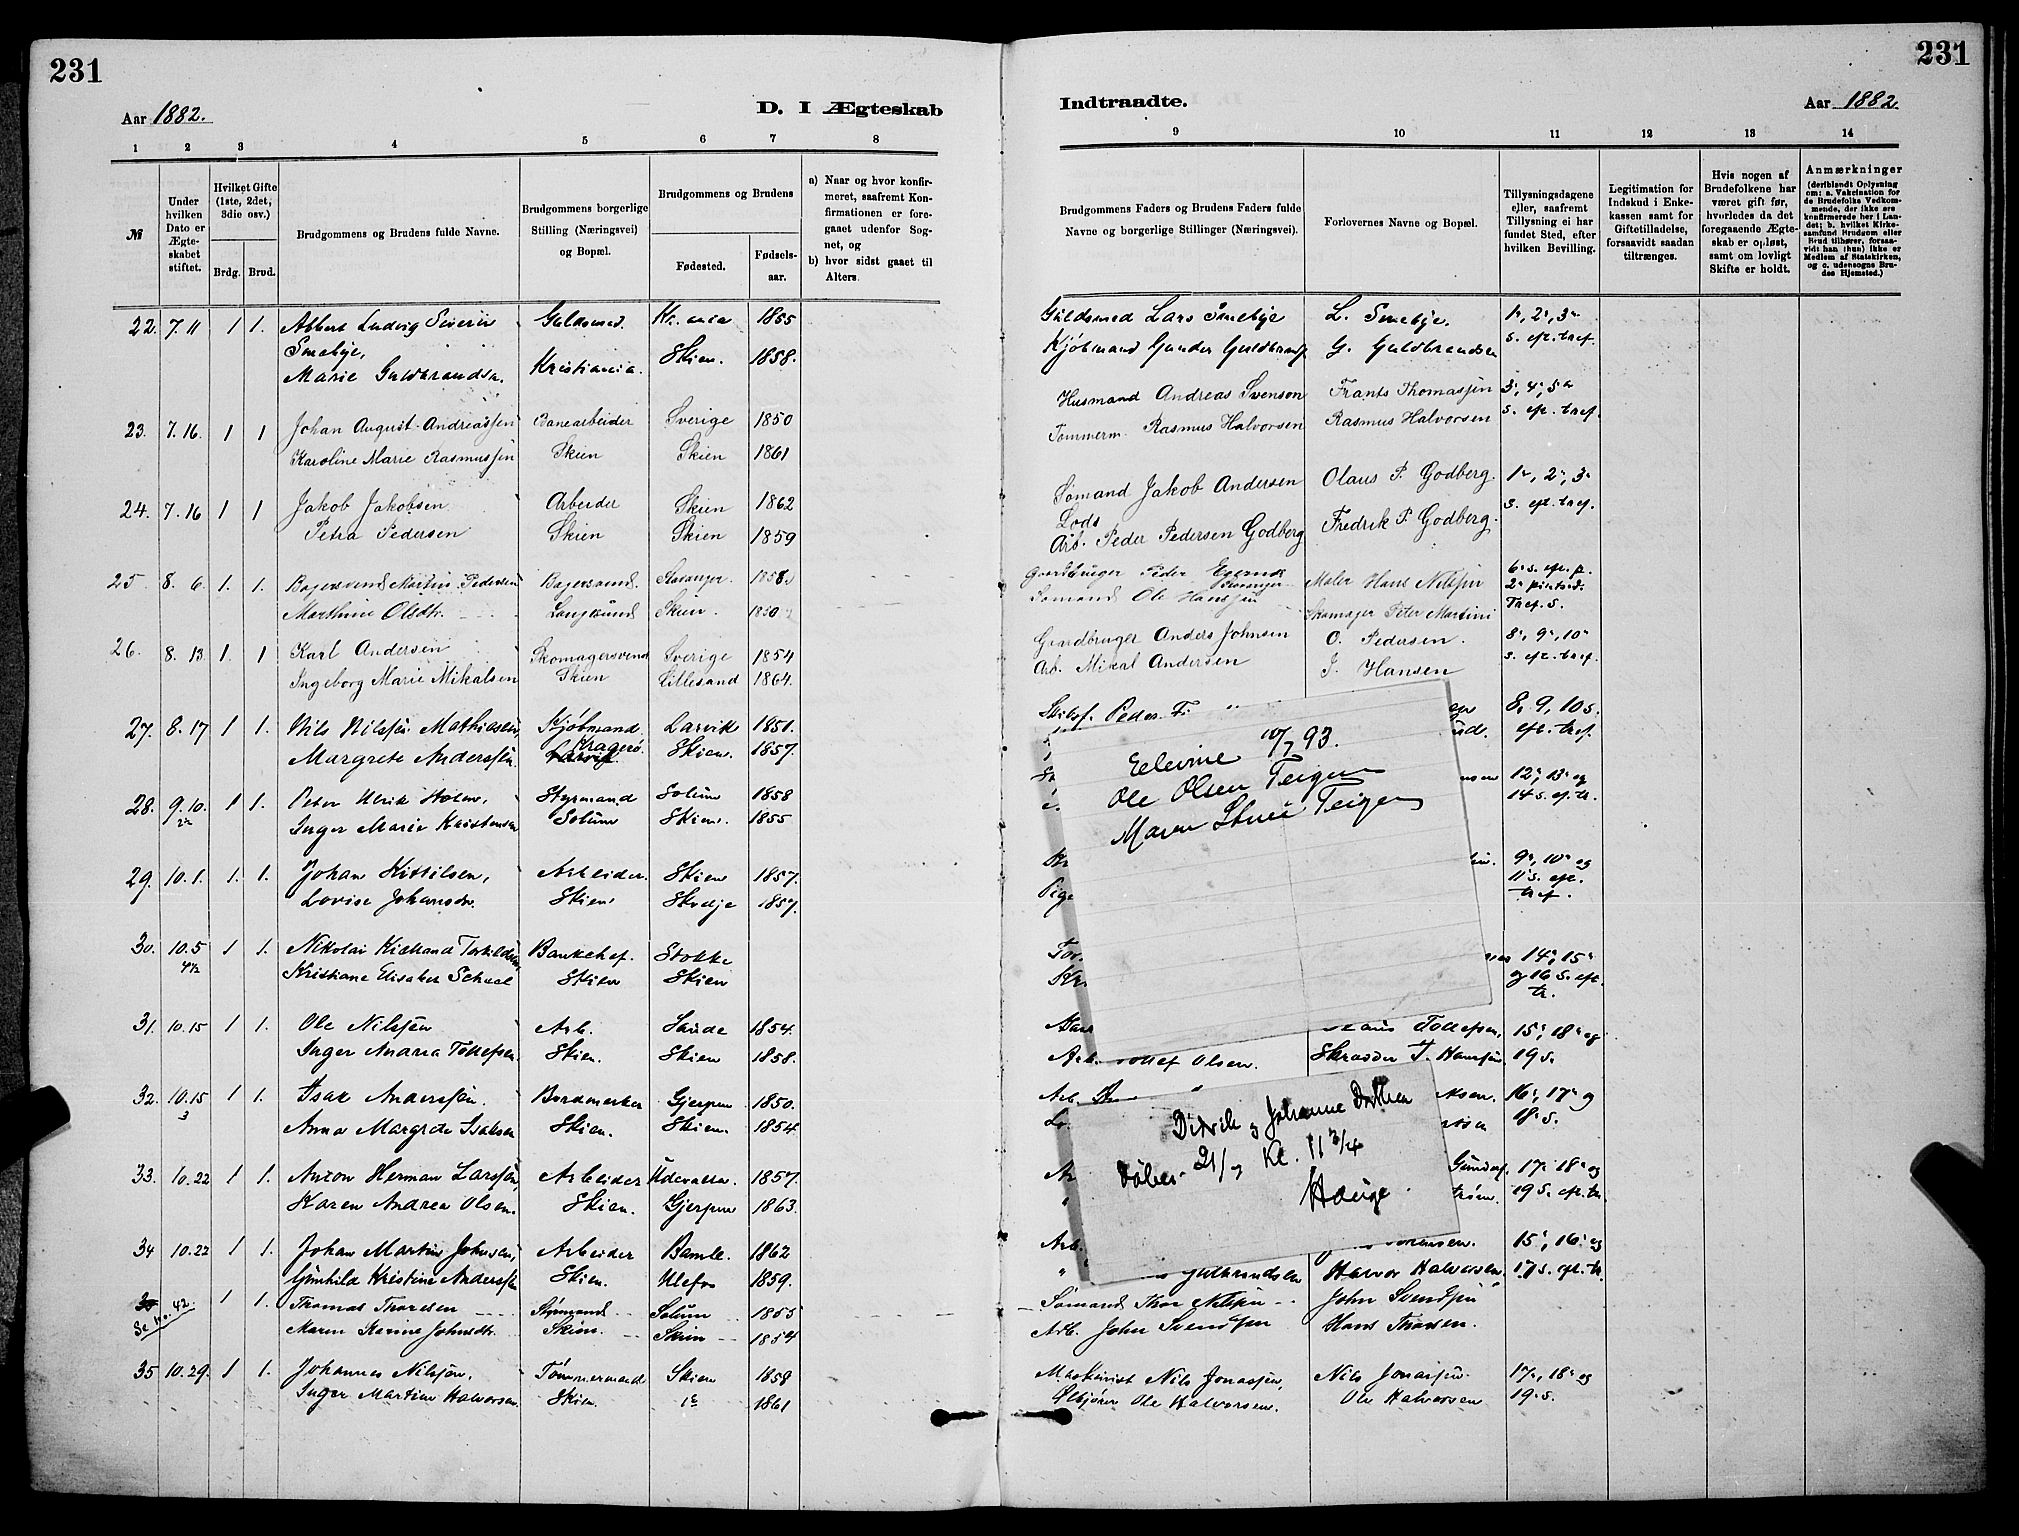 231
Aar 1882.
D. I Ægteskab
1 2 3 4 5 6 7 8
№
Under hvilken Dato er Ægteskabet stiftet.
Hvilket Gifte (1ste, 2det, 3die osv.)
Brdg. Brud.
Brudgommens og Brudens fulde Navne.
Brudgommens borgerlige Stilling (Næringsvei) og Bopæl.
Brudgommens og Brudens
Fødested.
Fødselsaar.
a) Naar og hvor konfirmeret, saafremt Konfirmationen er foregaaet udenfor Sognet, og
b) hvor sidst gaaet til Alters.
22. 7.11 1 1. Albert Ludvig Severin Guldsmed. Kr.ania 1855
Smebye,
Marie Guldbrandsn. Kristiania. Skien. 1858.
23. 7.16. 1 1 Johan August Andreassen Banearbeider Sverige 1850
Karoline Marie Rasmussen Skien Skien 1861
24. 7.16 1 1 Jakob Jakobsen Arbeider Skien 1862
Petra Pedersen Skien Skien 1859
25 8. 6. 1. 1. Bagersvend Martin Pedersen Bagersvend. Stavanger. 1858
Marthine Olsdtr. Langesund Skien. 1850
26. 8. 13 1. 1 Karl Andersen Skomagersvend Sverige 1854
Ingeborg Marie Mikalsen Skien Lillesand 1864.
27. 8.17 1 1. Nils Nilssen Mathiassen, Kjøbmand. Larvik 1851.
Margrete Anderssen. Kragerø. Larvik. Skien. 1857.
28. 9.10. 1 1. Peter Ulrik Holm, Styrmand Solum 1858
Inger Marie Kristensen Solum Skien. 1855
29. 10.1. 1. 1. Johan Kittilsen, Arbeider. Skien 1857.
Lovise Johansdr. Skien. Skedje 1857.
30. 10.5 1 1. Nikolai Kielland Torkildsen, Bankchef. Stokke
Kristiane Elisabet Schael Skien Skien
31. 10.15 1 1. Ole Nilssen Arb. Saude 1854.
Inger Maria Tollefsen. Skien. Skien 1858.
32. 10.15 1 1. Isak Anderssen. Bordmerker Gjerpen 1850.
3
Anna Margrete Isaksen Skien. Skien. 1854
33. 10.22 1 1. Anton Herman Larssen, Arbeider Udevalla. 1857.
Karen Andrea Olsen. Skien. Gjerpen 1863.
34 10.22 1 1. Johan Martin Johnsen, Arbeider Bamle. 1862
Gunhild Kristine Anderssen Skien. Ulefos 1859.
Se No. 42. 1 1. Thomas Thoresen Styrmand Solum 1855
Maren Karine Johnsdtr. Skien. Skien 1854
35 10.29. 1 1. Johannes Nilssen. Tømmermand Skien 1858
Inger Martine Halvorsen. Skien. 1861
231
Indtraadte.
Aar 1882
9 10 11 12 13 14
Brudgommens Faders og Brudens Faders fulde Navne og borgerlige Stillinger (Næringsvei).
Forlovernes Navne og Bopæl.
Tillysningsdagene eller, saafremt Tillysning ei har fundet Sted, efter hvilken Bevilling.
Legitimation for Indskud i Enkekassen samt for Giftetilladelse, forsaavidt saadan tiltrænges.
Hvis nogen af Brudefolkene har været gift før, hvorledes da det foregaaende Ægteskab er opløst, samt om lovligt Skifte er holdt.
Anmærkninger (deriblandt Oplysning om: a. Vakcination for de Brudefolks Vedkommende, der ikke ere konfirmerede her i Landet; b. hvilket Kirkesamfund Brudgom eller Brud tilhører, forsaavidt han (hun) ikke er Medlem af Statskirken, og c. udensogns Brudes Hjemsted.)
Guldsmed Lars Smebye L. Smebye. 1ˢ, 2ˢ, 3ˢ
Kjøbmand Gunder Guldbrands. G. Guldbrandsen s. ef. tref.
Husmand Andreas Svenson Frants Thomassen 3ˢ, 4ˢ, 5ˢ
Tømmerm. Rasmus Halvorsen Rasmus Halvorsen s. ef. tref.
Sømand Jakob Andersen Olaus P. Godberg. 1ˢ, 2ˢ, 3ˢ
Lods
Arb. Peder Pedersen Godberg Fredrik P. Godberg. s. ef. tref.
Gaardbruger Peder Egernes Stavanger Maler Hans Nilssen 6. s. ef. p.
Sømand Ole Hanssen Skomager Peter Martini 2ˢ pintsd. Tref. s.
Gaardbruger Anders Johnsen O. Pedersen. 8ˢ, 9ˢ, 10ˢ
Arb. Mikal Andersen J. Hansen s. ef. tref.
Skibsf. Peder 8, 9, 10 s.
ef. tref.
12ˢ, 13ˢ og
14 s. ef. tr.
9ˢ, 10ˢ og
Pige 11 s. ef.
tref.
14ˢ, 15ˢ
og 16 s. ef.
tr.
Tollefsen, 15ˢ, 18ˢ og
Arb. Tollef Olsen. Skrædder T. Hanssen. 19 s.
Arb. 16ˢ, 17ˢ og
18 s.
17ˢ 18ˢ og
19 s. ef. tr.
Arb. 15ˢ, 16ˢ og
Gulbrandsen Halvor Halvorsen. 17 s. ef. tr.
Sømand Thor Nilssen John Svendsen
Arb. John Svendsen Hans Thoresen.
Maskinist Nils Jonassen, Nils Jonassen. 17ˢ, 18ˢ og
Ølkjører Ole Halvorsen. Ole Halvorsen 19 s.
10/7 93.
Elevine
Ole Olsen Teigen
Maren Stine Teigen
Didrik og Johanne
døbes 21/9 Kl. 11 3/4
Hauge.